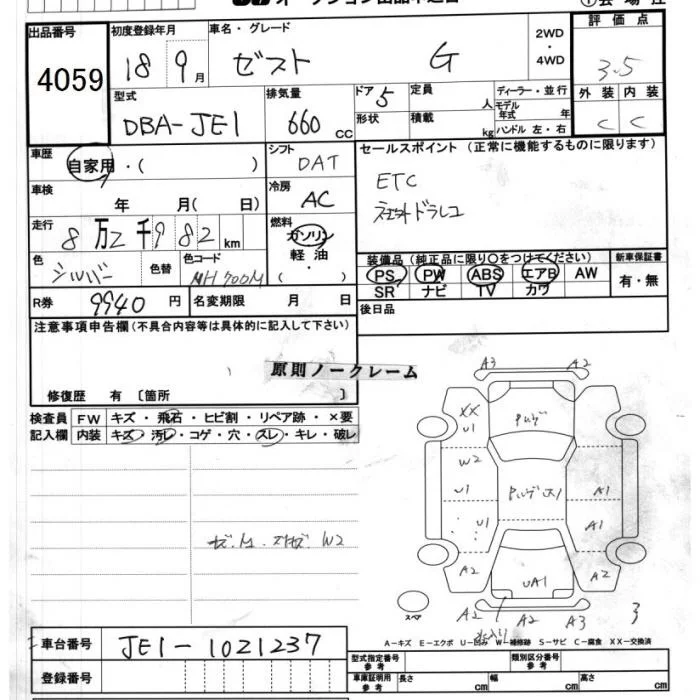 出品番号 4059
初度登録年月 18 9月
車名・グレード ゼスト G
2WD・4WD
評価点 3.5
型式 DBA-JE1
排気量 660 cc
ドア 5
形状
定員 人
積載 kg
ディーラー・並行
モデル年式 年
ハンドル 左・右
外装 C
内装 C
車歴 自家用・( )
シフト DAT
セールスポイント (正常に機能するものに限ります)
ETC
車検 年 月( 日)
冷房 AC
走行 8万2千982km
燃料 ガソリン 軽油・( )
色 シルバー
色替
色コード NH700M
装備品 (純正品に限り〇をつけてください)
PS PW ABS エアB AW
SR ナビ TV カワ
新車保証書 有・無
R券 9940円
名変期限 月 日
後日品
注意事項申告欄(不具合内容等は具体的に記入して下さい)
原則ノークレーム
修復歴 有 〔箇所 〕
検査員記入欄
FW キズ・飛石・ヒビ割・リペア跡・×要
内装 キズ・汚レ・コゲ・穴・スレ・キレ・破レ
A3 A2
XX
U1
W2
U1 A1
U1 A1
A2 UA1 A2
スペア
A2 A2 A3
A-キズ E-エクボ U-凹み W-補修跡 S-サビ C-腐食 XX-交換済
車台番号 JE1-1021237
登録番号
型式指定番号 参考
類別区分番号 参考
車庫証明用 参考 長さ cm 幅 cm 高さ cm